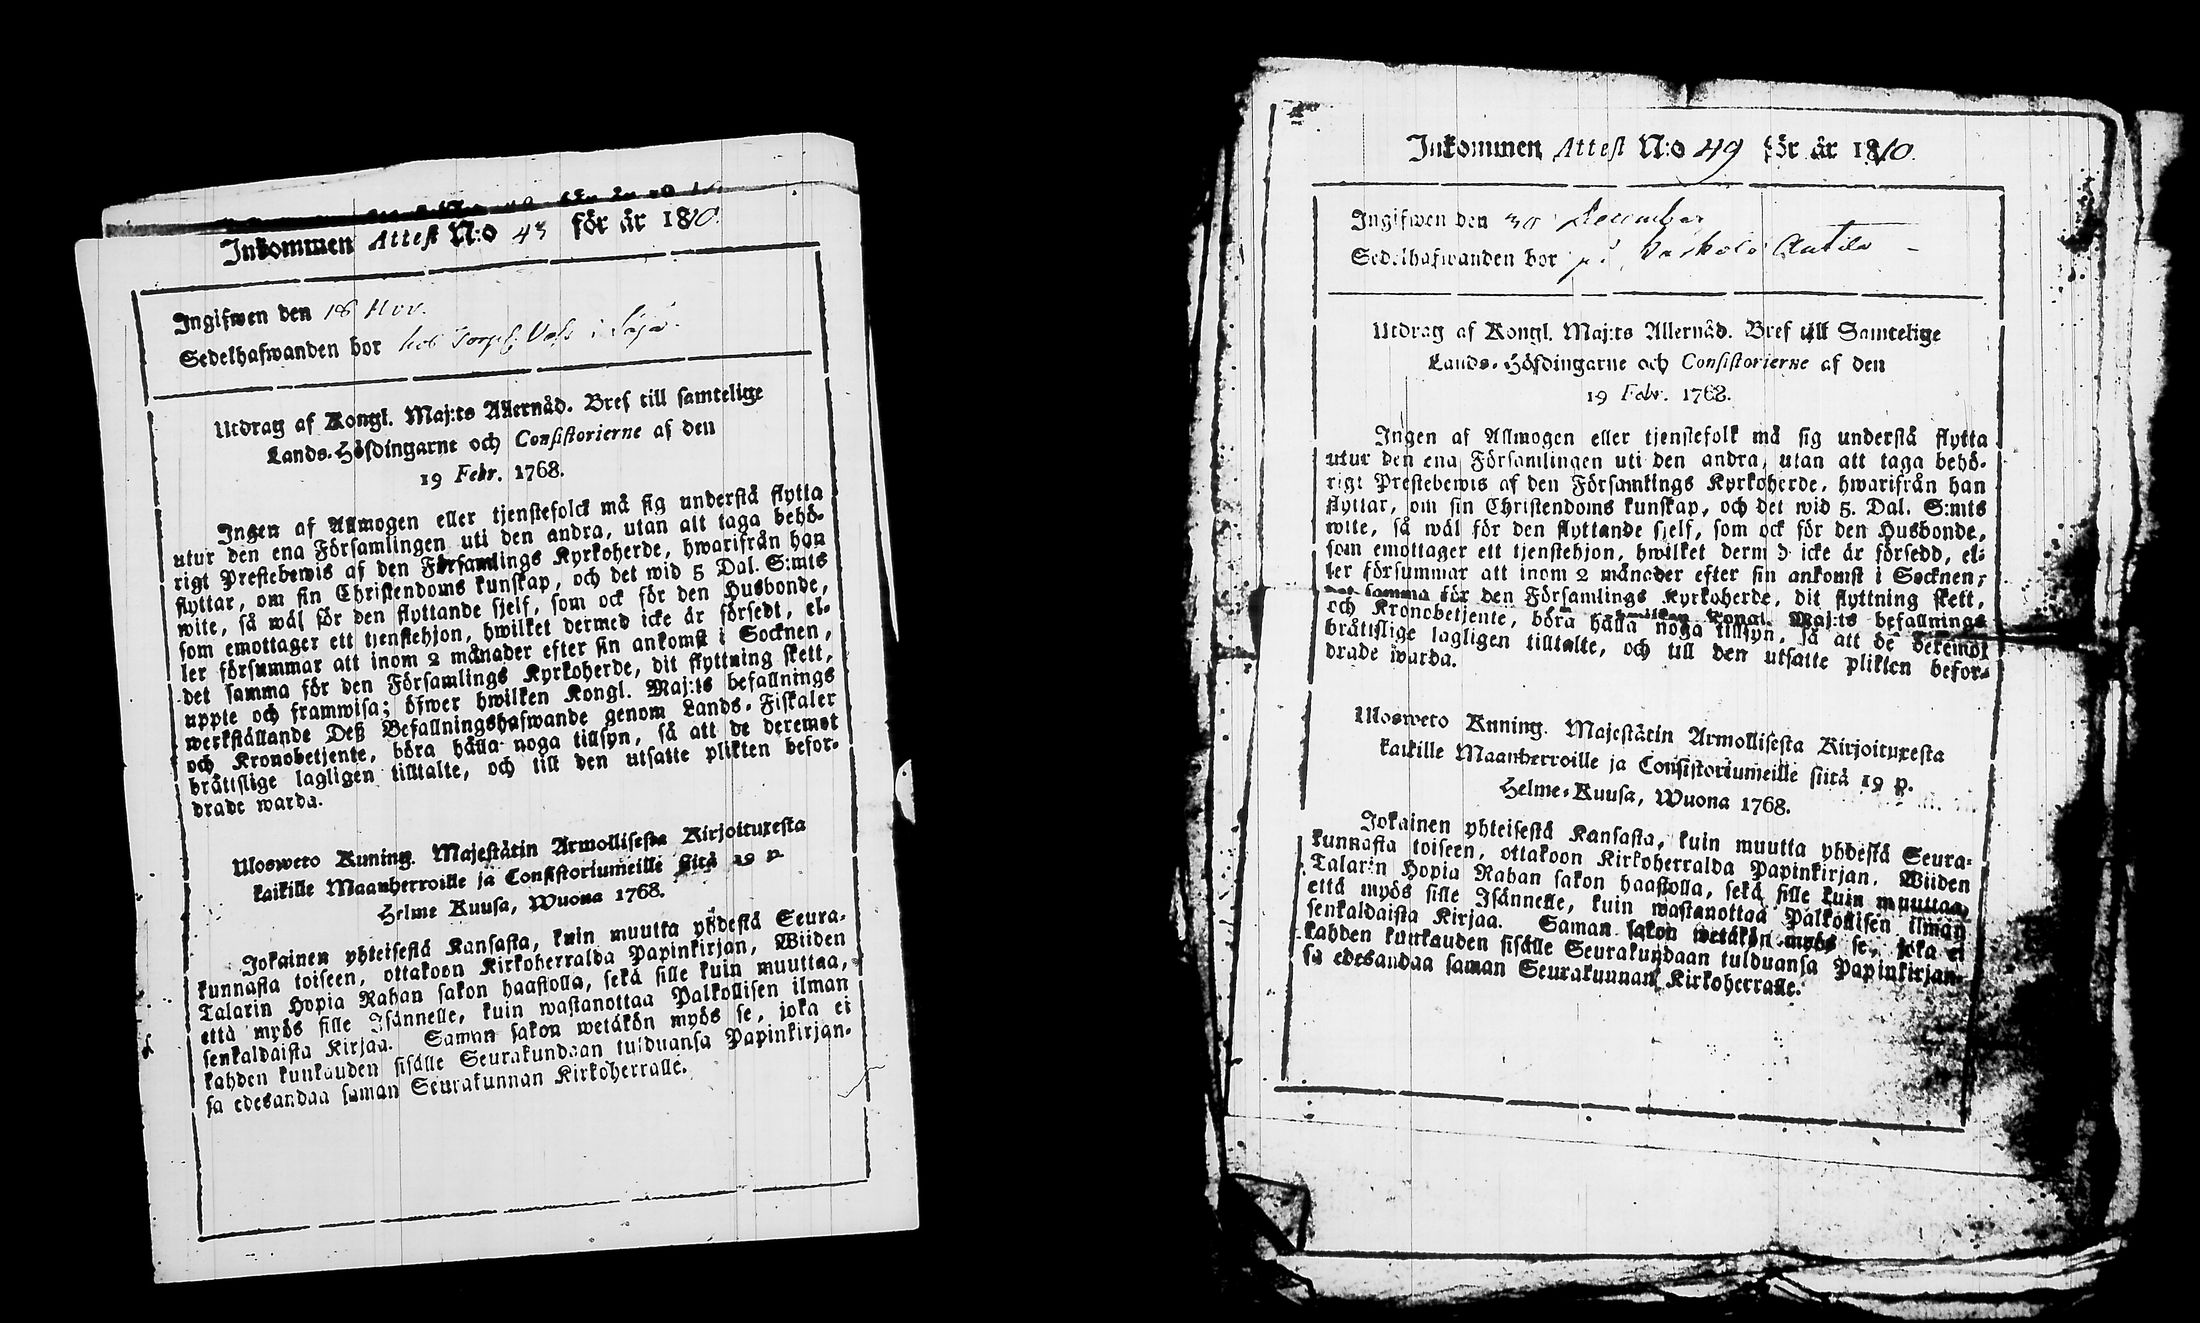 Inkommen Attest N:o 43 för år 1810.
Ingifwen den 18 Nov.
Sedelhafwanden bor hos
Utdrag af Kongl. Maj:ts Allernåd. Bref till samtelige
Lands-Höfdingarne och Consistorierne af den
19 Febr. 1768.
Ingen af Allmogen eller tjenstefolck må sig understå flytta
utur den ena Församlingen uti den andra, utan att taga behö-
rigt Prestebewis af den Församlings Kyrkoherde, hwarifrån han
flyttar, om sin Christendoms kunskap, och det wid 5 Dal. S:mts
wite, så wäl för den flyttande sjelf, som ock för den Husbonde,
som emottager ett tjenstehjon, hwilket dermed icke är försedt, el-
ler försummar att inom 2 månader efter sin ankomst i Socknen,
det samma för den Församlings Kyrkoherde, dit flyttning skett,
uppte och framwisa; öfwer hwilken Kongl. Maj:ts befallnings
werkställande Deß Befallningshafwande genom Lands-Fiskaler
och Kronobetjente, böra hålla noga tillsyn, så att de deremot
bråttslige lagligen tilltalte, och till den utsatte plikten befor-
drade warda.
Ulosweto Kuning. Majestätin Armollisesta Kirjoituxesta
kaikille Maanherroille ja Consistoriumeille siitä 19 p.
Helme Kuusa, Wuona 1768.
Jokainen yhteisestä Kansasta, kuin muutta yhdestä Seura-
kunnasta toiseen, ottakoon Kirkoherralda Papinkirjan, Wiiden
Talarin Hopia Rahan sakon haastolla, sekä sille kuin muuttaa,
että myös sille Isännelle, kuin wastanottaa Palkollisen ilman
senkaldaista Kirjaa. Saman sakon wetäkön myös se, joka ei
kahden kunkauden sisälle Seurakundaan tulduansa Papinkirjan-
sa edesandaa saman Seurakunnan Kirkoherralle.
Inkommen Attest N:o 49 för år 1810.
Ingifwen den 30 December
Sedelhafwanden bor på
Utdrag af Kongl. Maj:ts Allernåd. Bref till Samtelige
Lands-Höfdingarne och Consistorierne af den
19 Febr. 1768.
Ingen af Allmogen eller tjenstefolk må sig understå flytta
utur den ena Församlingen uti den andra, utan att taga behö-
rigt Prestebewis af den Församlings Kyrkoherde, hwarifrån han
flyttar, om sin Christendoms kunskap, och det wid 5. Dal. S:mts
wite, så wäl för den flyttande sjelf, som ock för den Husbonde,
som emottager ett tjenstehjon, hwilket dermed icke är försedd, el-
ler försummar att inom 2 månader efter sin ankomst i Socknen,
det samma för den Församlings Kyrkoherde, dit flyttning skett,
hwilken Kongl. Maj:ts befallnings
och Kronobetjente, böra hålla noga tillsyn, så att de deremot
bråttslige lagligen tilltalte, och till den utsatte plikten befor-
drade warda.
Ulosweto Kuning. Majestätin Armollisesta Kirjoituxesta
kaikille Maanherroille ja Consistoriumeille siitä 19 p.
Helme-Kuusa, Wuona 1768.
Jokainen yhteisestä Kansasta, kuin muutta yhdestä Seura-
kunnasta toiseen, ottakoon Kirkoherralda Papinkirjan, Wiiden
Talarin Hopia Rahan sakon haastolla, sekä sille kuin muuttaa,
että myös sille Isännelle, kuin wastanottaa Palkollisen ilman
senkaldaista Kirjaa. Saman sakon wetäkön myös se, joka ei
kahden kuukauden sisälle Seurakundaan tulduansa Papinkirjan-
sa edesandaa saman Seurakunnan Kirkoherralle.